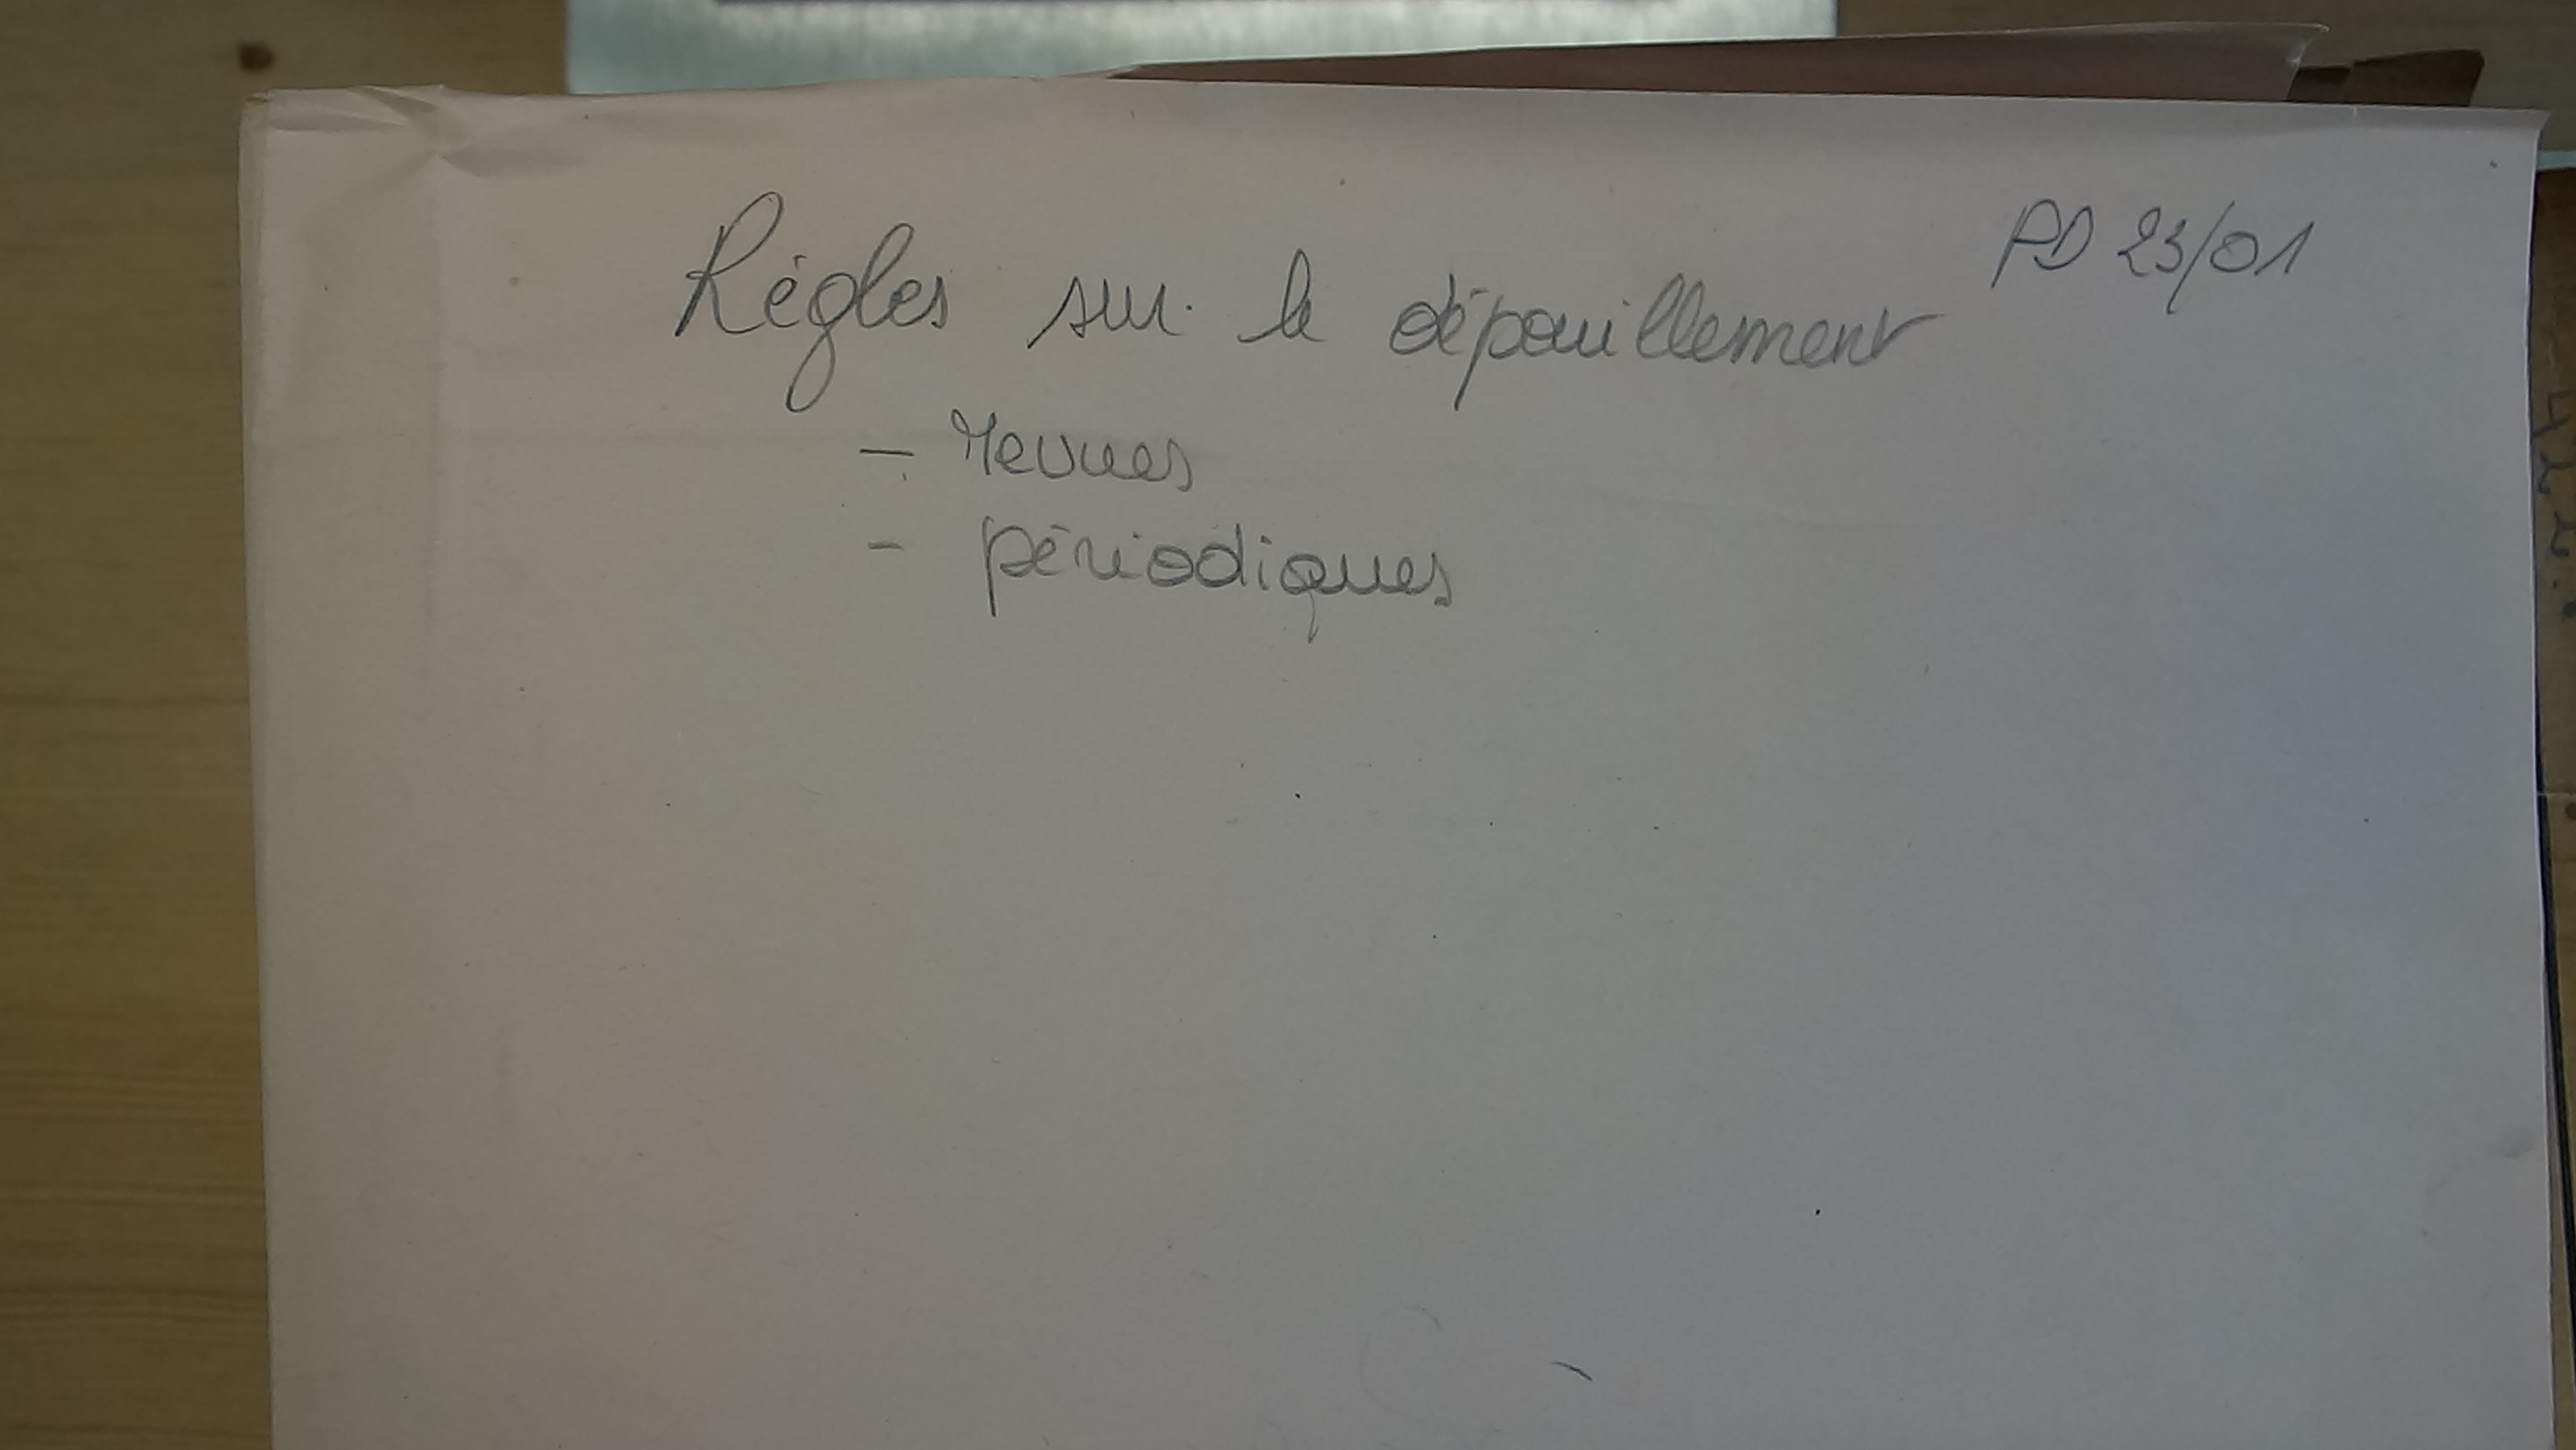 PD 23/01
Régles sur le dépouillement
- revues
- périodiques